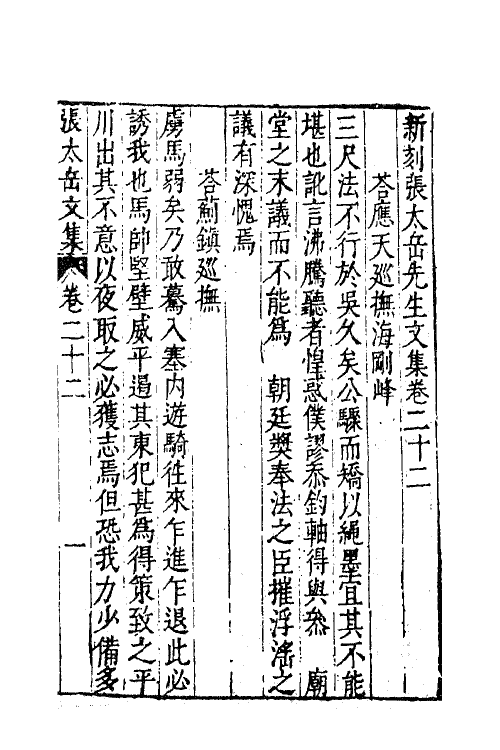 新刻張太岳先生文集卷二十二
荅應天巡撫海剛峰
三尺法不行於吳久矣公驟而矯以繩墨宜其不能
堪也訛言沸騰聽者惶惑僕謬忝鈞軸得與叅　廟
堂之末議而不能爲　朝廷奬奉法之臣摧浮淫之
議有深愧焉
荅薊鎮巡撫
虜馬弱矣乃敢驀入塞内遊騎徃來乍進乍退此必
誘我也馬帥堅壁威平遏其東犯甚爲得策致之平
川出其不意以夜取之必獲志焉但恐我力少備多
張太岳文集　卷二十二　一